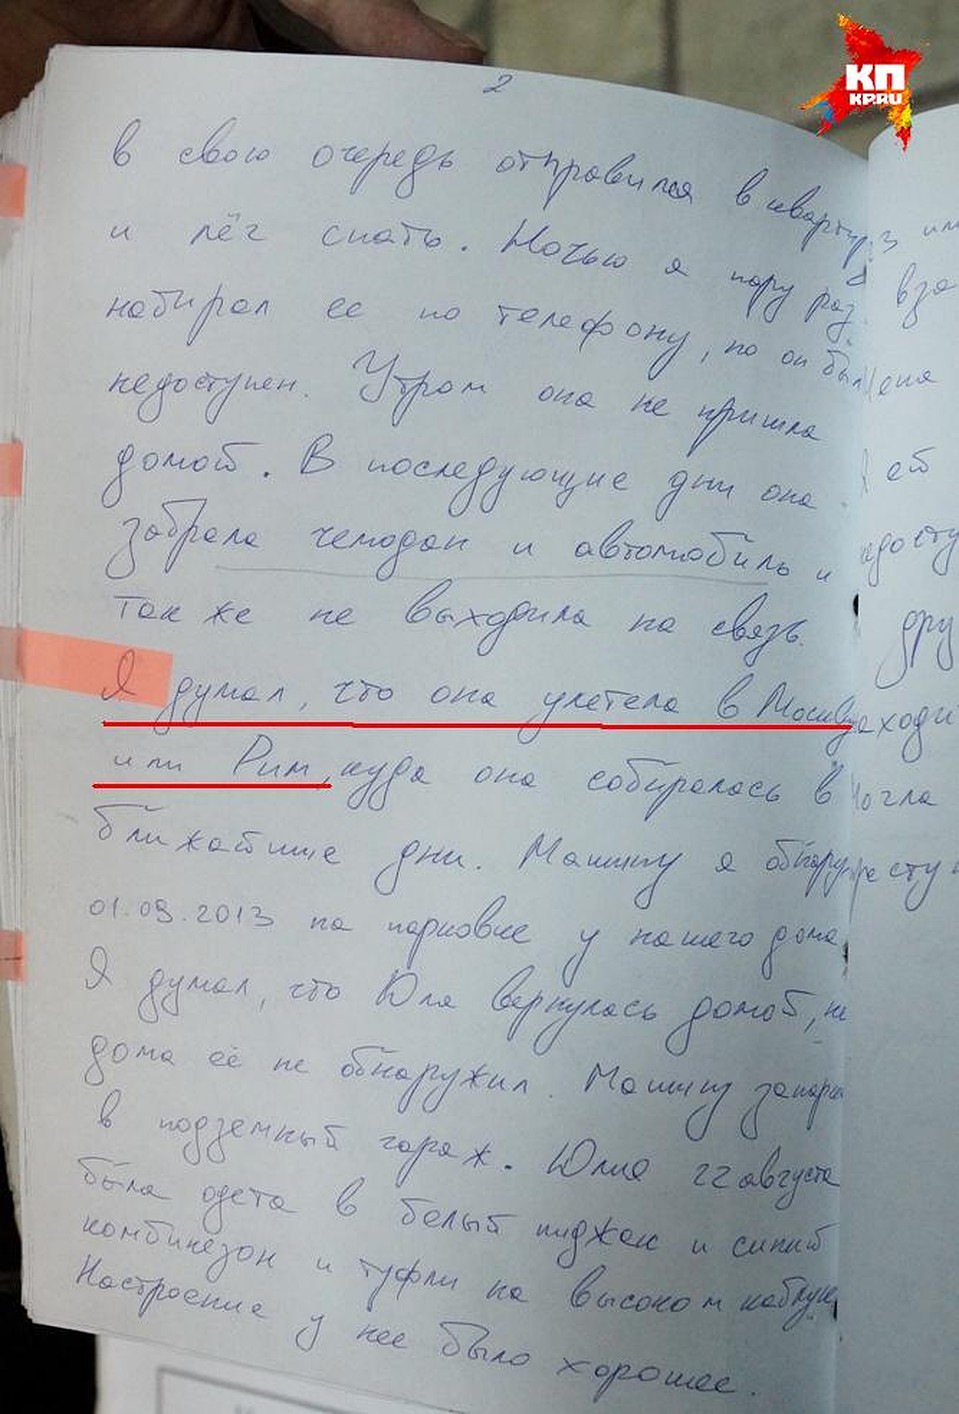 КП
KP.RU
2
в свою очередь отправился в квартиру
и лёг спать. Ночью я пару раз
набирал ее по телефону, но он был
недоступен. Утром она не пришла
домой. В последующие дни она
забрала чемодан и автомобиль и
так же не выходила на связь.
Я думал, что она улетела в Москву
или Рим, куда она собиралась в
ближайшие дни. Машину я обнаружил
01.09.2013 на парковке у нашего дома
Я думал, что Юля вернулась домой, но
дома её не обнаружил. Машину
в подземный гараж. Юлия 22 августа
была одета в белый пиджак и синий
комбинезон и туфли на высоком каблуке
Настроение у нее было хорошее.